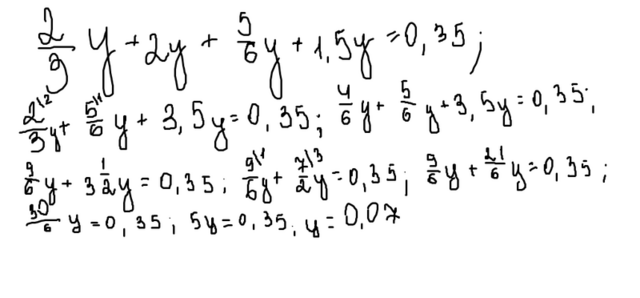 2/3 y + 2y + 5/6 y + 1,5y = 0,35;
2\2/3 y + 5\1/6 y + 3,5y = 0,35; 4/6 y + 5/6 y + 3,5y = 0,35;
9/6 y + 3 1/2 y = 0,35; 9\1/6 y + 7\3/2 y = 0,35; 9/6 y + 21/6 y = 0,35;
30/6 y = 0,35; 5y = 0,35, y = 0,07